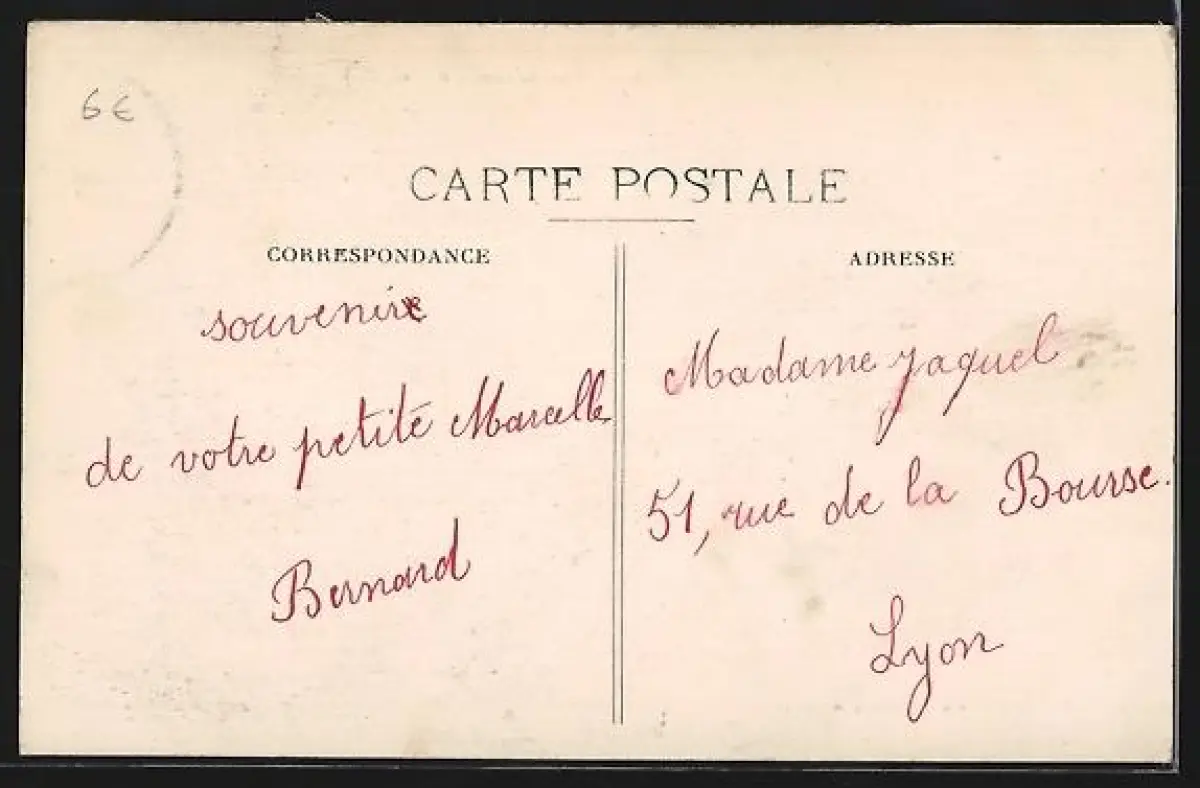 6€
CARTE POSTALE
CORRESPONDANCE
souvenir
de votre petite Marcelle
Bernard
ADRESSE
Madame Jaquel
51, rue de la Bourse.
Lyon